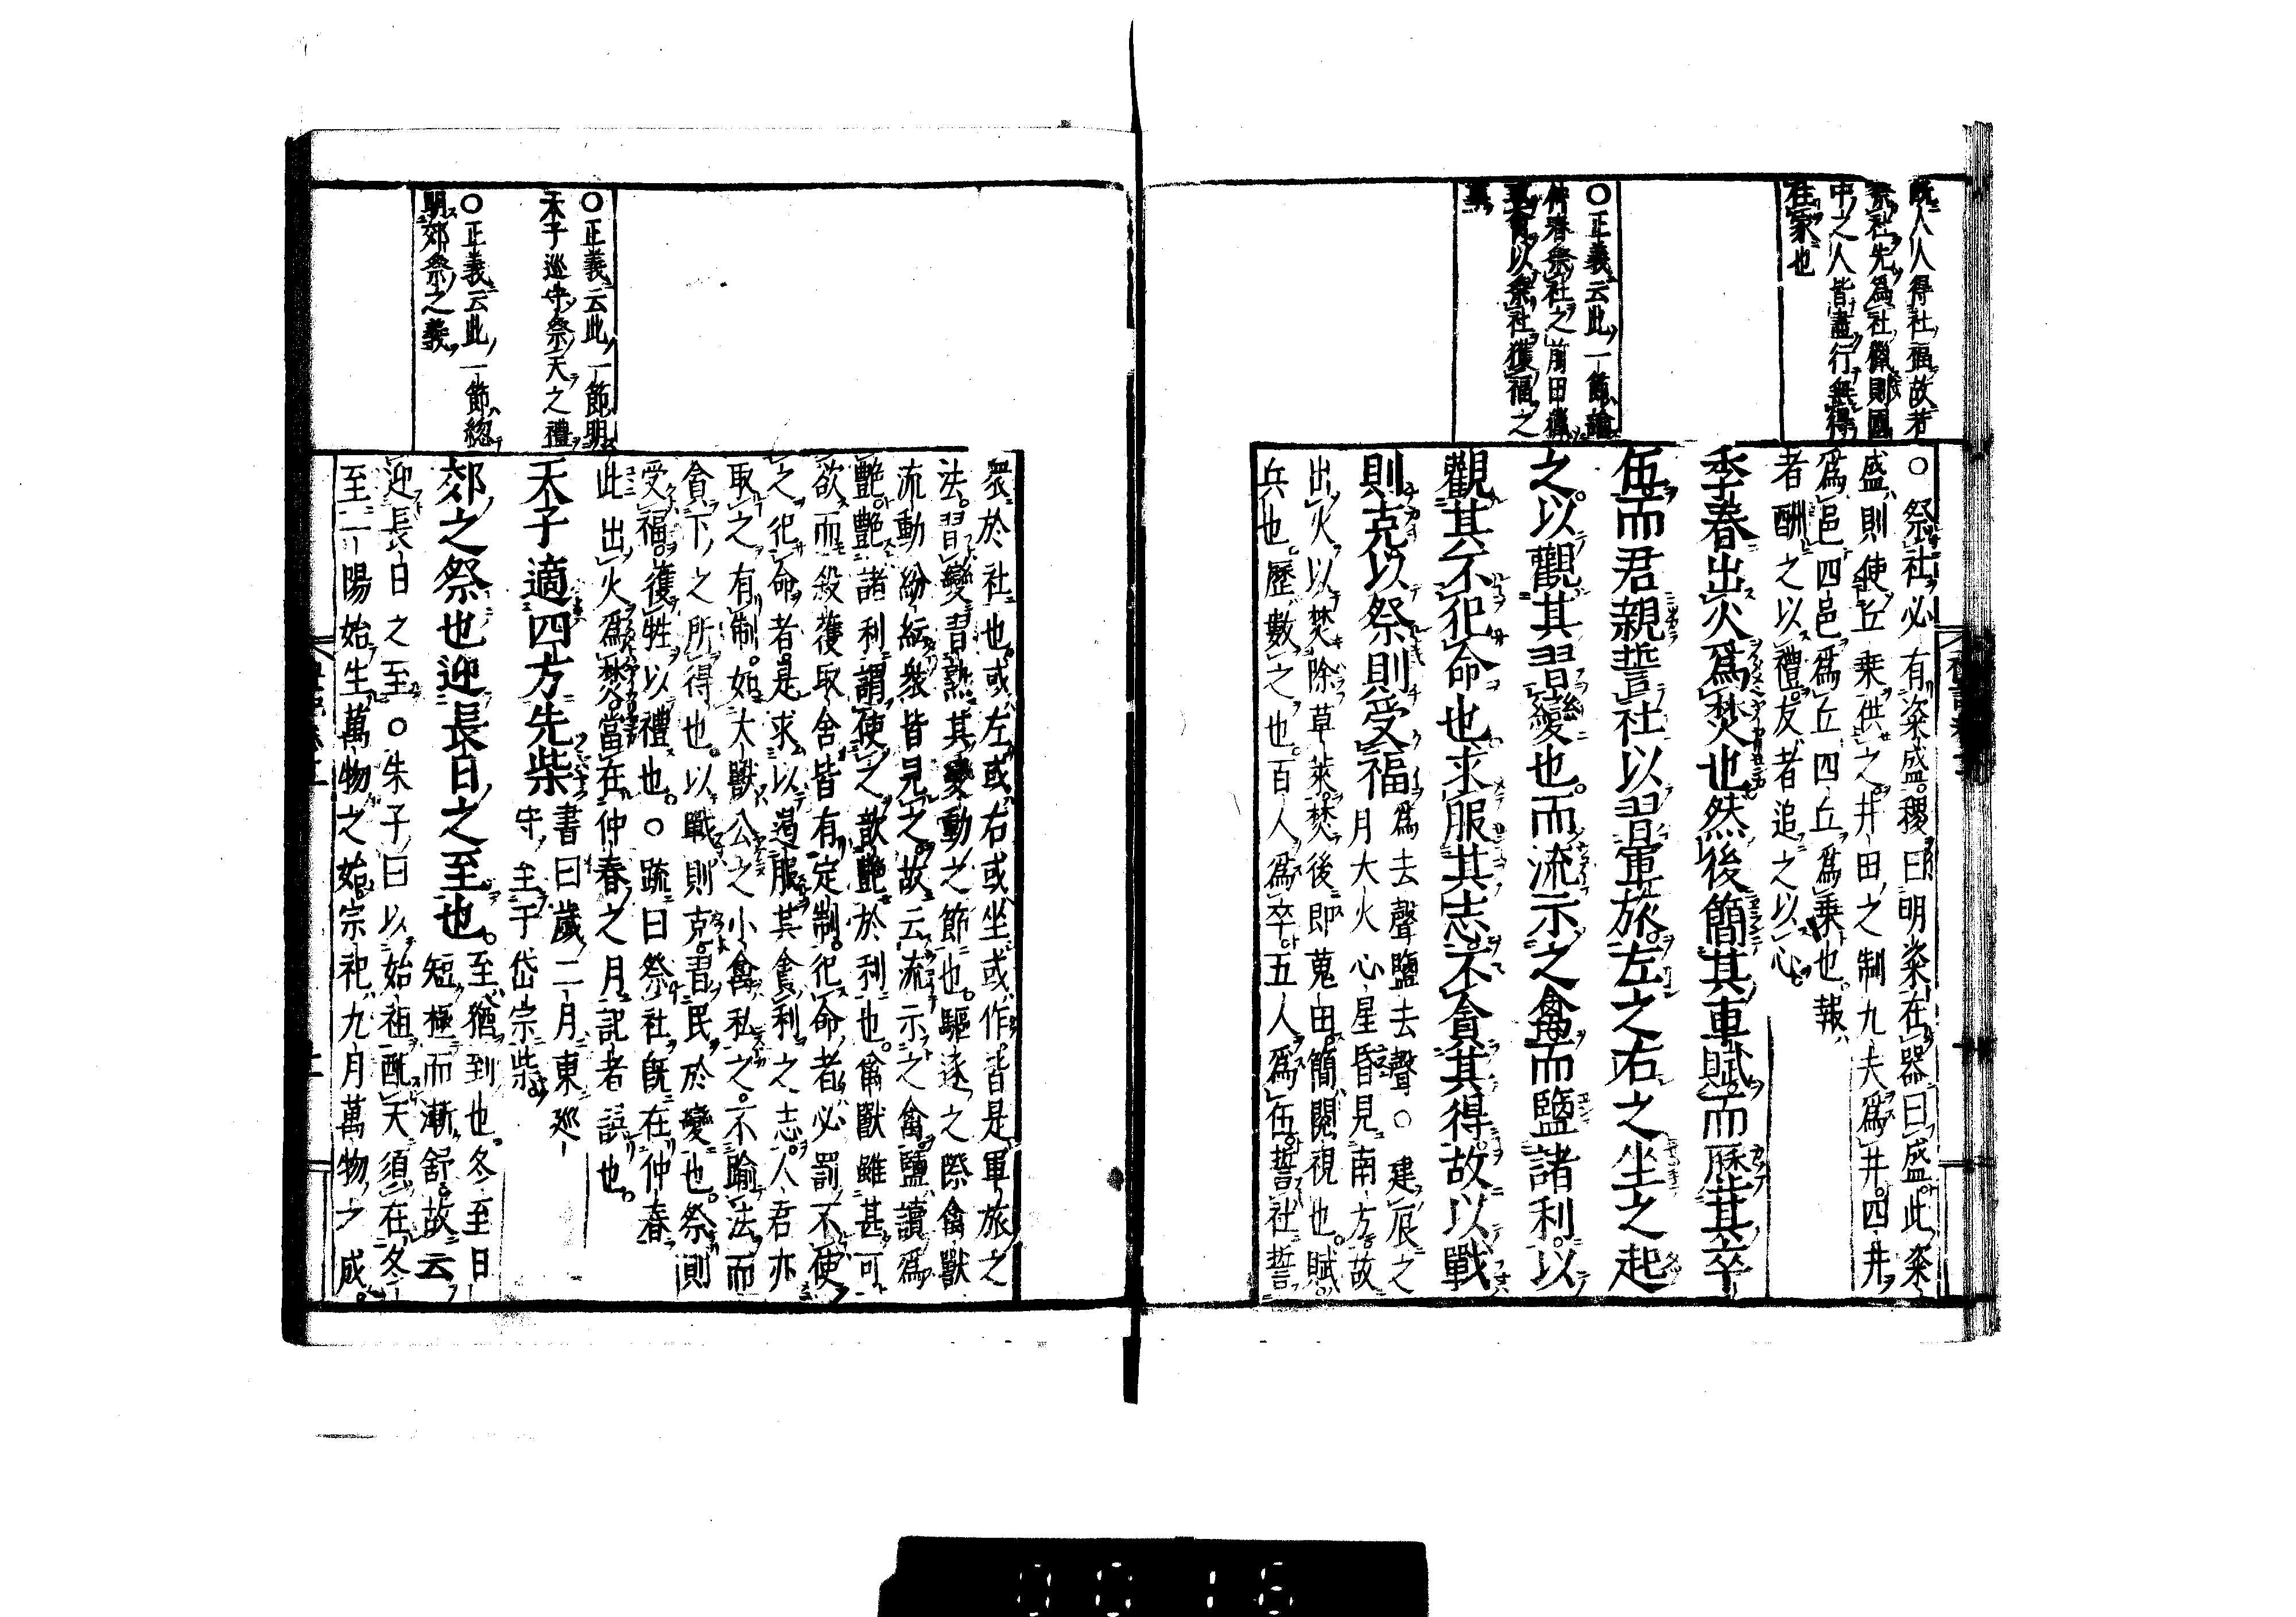 既人人得社福故若
祭社先爲社獵則國
中之人皆盡行無得
在家也
○正義云此一節論
仲春祭社之前田獵
取禽以祭社獲福之
事
○祭社必有粢盛稷曰明粢在器曰盛此粢
盛則使丘乘供之井田之制九夫爲井四井
爲邑四邑爲丘四丘爲乘也報
者酬之以禮友者追之以心
季春出火爲焚也然後簡其車賦而歷其卒
伍而君親誓社以習軍旅左之右之坐之起
之以觀其習變也而流示之禽而鹽諸利以
觀其不犯命也求服其志不貪其得故以戰
則克以祭則受福爲去聲鹽去聲○建辰之
月大火心星昏見南方故
出火以焚除草萊焚後即蒐田簡閱視也賦
兵也歷數之也百人爲卒五人爲伍誓社誓
衆於社也或左或右或坐或作皆是軍旅之
法習變習熟其變動之節也驅逐之際禽獸
流動紛紜衆皆見之故云流示之禽鹽讀爲
艶艶諸利謂使之歆艶於利也禽獸雖甚可
欲而殺獲取舍皆有定制犯命者必罰不使
之犯命者是求以遏服其貪利之志人君亦
取之有制如大獸公之小禽私之不踰法而
貪下之所得也以戰則克習民於變也祭則
受福獲牲以禮也○疏曰祭社既在仲春
此出火爲焚當在仲春之月記者誤也
○正義云此一節明
天子巡守祭天之禮
○正義云此一節總
明郊祭之義
天子適四方先柴書曰歲二月東巡
守至于岱宗柴
郊之祭也迎長日之至也至猶到也冬至日
短極而漸舒故云
迎長日之至○朱子曰以始祖配天須在冬
至一陽始生萬物之始宗祀九月萬物之成